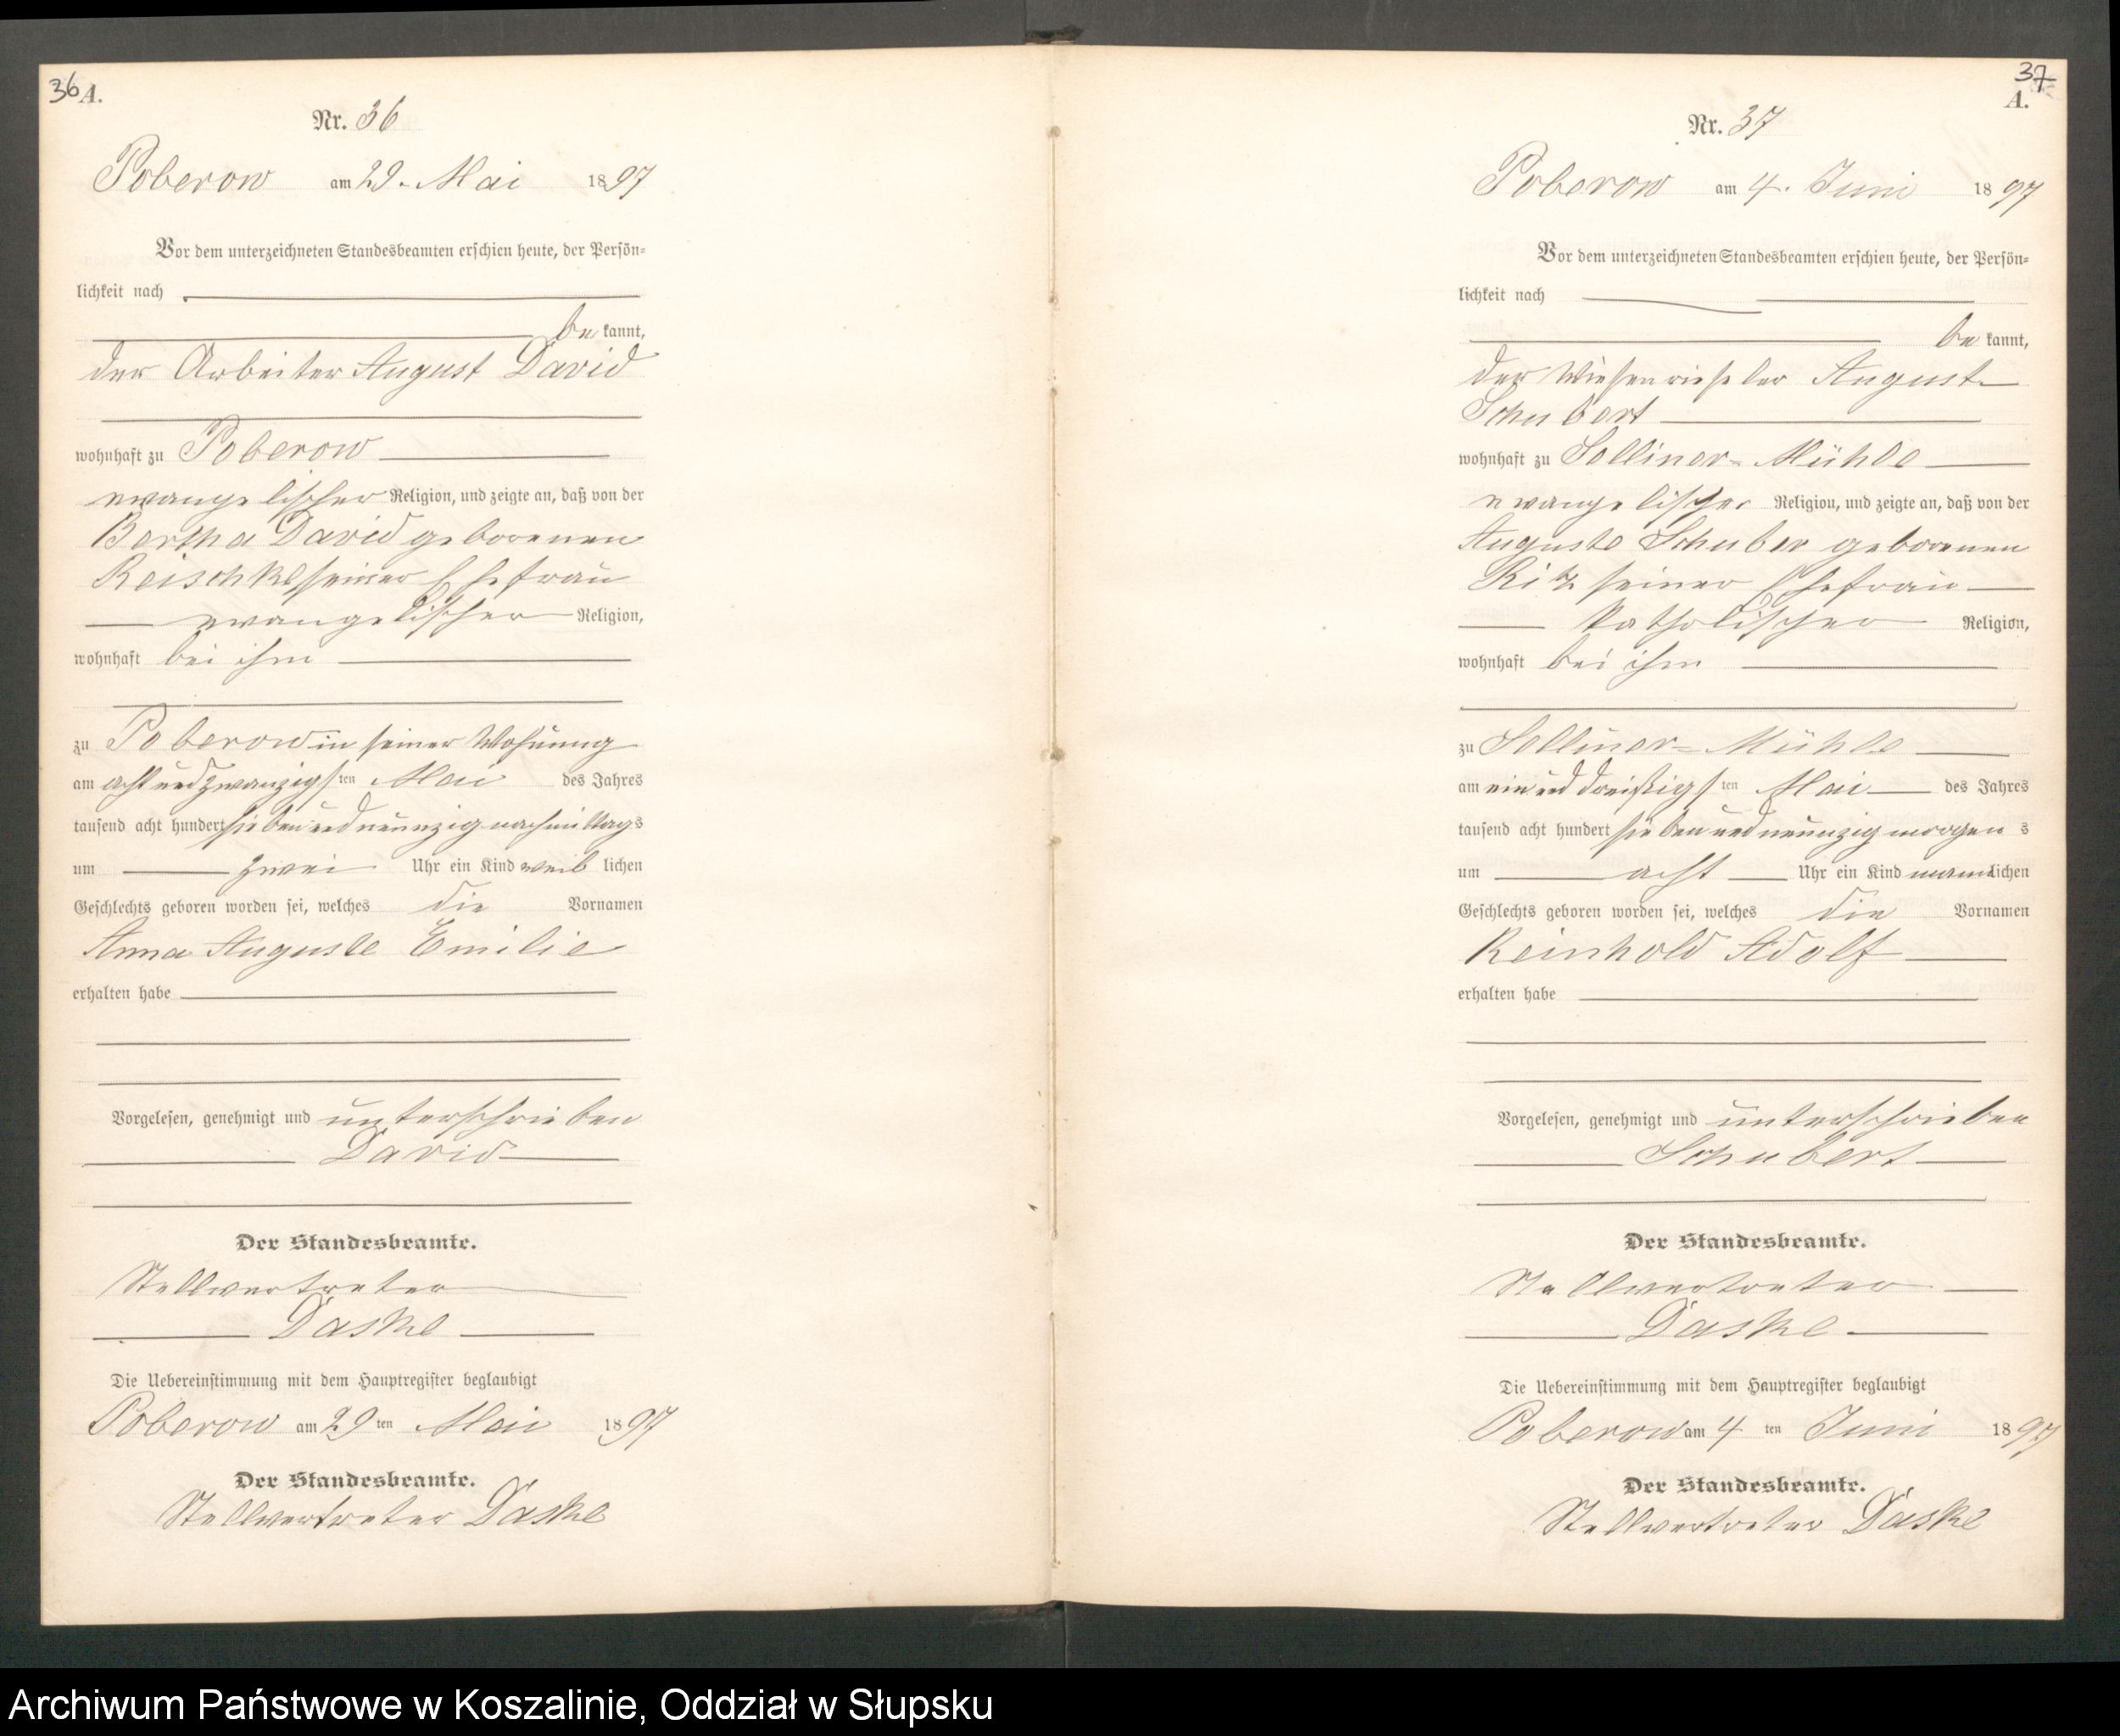 36 A.
Nr. 36
Poberow am 29. Mai 1897
Vor dem unterzeichneten Standesbeamten erschien heute, der Persön=
lichkeit nach
be kannt,
der Arbeiter August David
wohnhaft zu Poberow
evangelischer Religion, und zeigte an, daß von der
Bertha David geborenen
Reischke seiner Ehefrau
evangelischer Religion,
wohnhaft bei ihm
zu Poberow in seiner Wohnung
am acht und zwanzigsten Mai des Jahres
tausend acht hundert sieben und neunzig nachmittags
um zwei Uhr ein Kind weiblichen
Geschlechts geboren worden sei, welches die Vornamen
Anna Auguste Emilie
erhalten habe
Vorgelesen, genehmigt und unterschrieben
David
Der Standesbeamte.
Stellvertreter
Daske
Die Uebereinstimmung mit dem Hauptregister beglaubigt
Poberow am 29ten Mai 1897
Der Standesbeamte.
Stellvertreter Daske
37
A.
Nr. 37
Poberow am 4. Juni 1897
Vor dem unterzeichneten Standesbeamten erschien heute, der Persön=
lichkeit nach
be kannt,
der Wiesenrieseler August
Schubert
wohnhaft zu Solliner=Mühle
evangelischer Religion, und zeigte an, daß von der
Auguste Schuber geborenen
Ritz seiner Ehefrau
katholischer Religion,
wohnhaft bei ihm
zu Solliner=Mühle
am ein und dreißigsten Mai des Jahres
tausend acht hundert sieben und neunzig morgens
um acht Uhr ein Kind männlichen
Geschlechts geboren worden sei, welches die Vornamen
Reinhold Adolf
erhalten habe
Vorgelesen, genehmigt und unterschrieben
Schubert
Der Standesbeamte.
Stellvertreter
Daske
Die Uebereinstimmung mit dem Hauptregister beglaubigt
Poberow am 4ten Juni 1897
Der Standesbeamte.
Stellvertreter Daske
Archiwum Państwowe w Koszalinie, Oddział w Słupsku